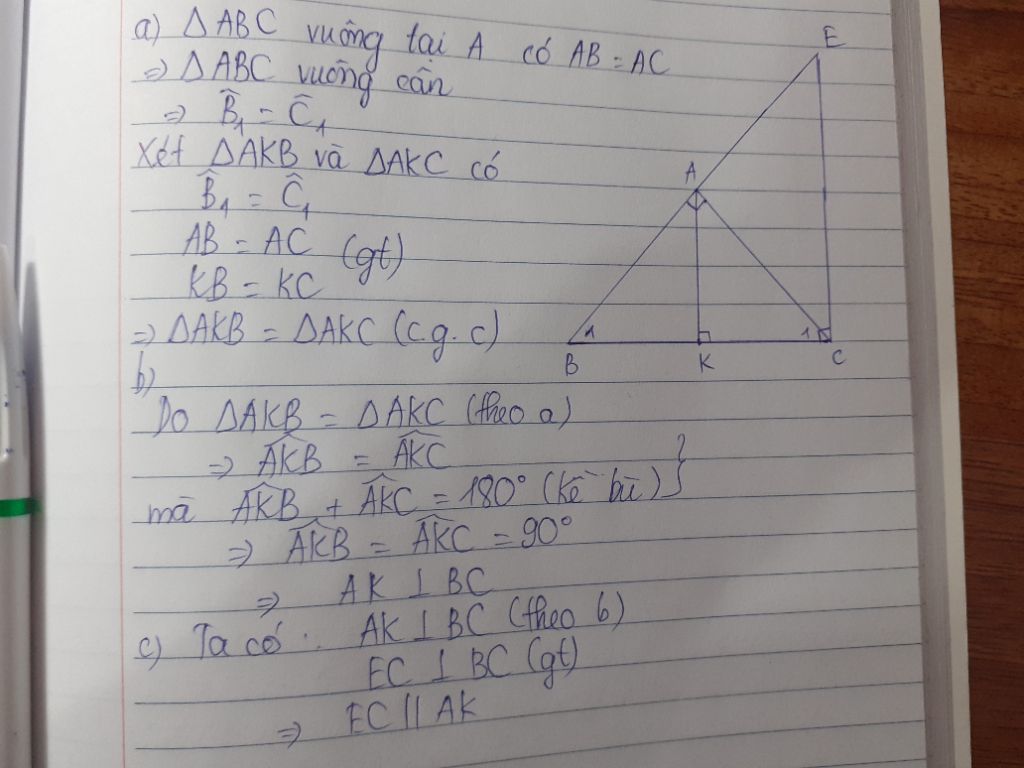 a) △ABC vuông tại A có AB = AC
⇒ △ABC vuông cân
⇒ B̂₁ = Ĉ₁
Xét △AKB và △AKC có
B̂₁ = Ĉ₁
AB = AC (gt)
KB = KC
⇒ △AKB = △AKC (c.g.c)
b)
Do △AKB = △AKC (theo a)
⇒ AK̂B = AK̂C
mà AK̂B + AK̂C = 180° (kề bù) }
⇒ AK̂B = AK̂C = 90°
⇒ AK ⊥ BC
c) Ta có : AK ⊥ BC (theo b)
EC ⊥ BC (gt)
⇒ EC // AK
E
A
1
1
B
K
C